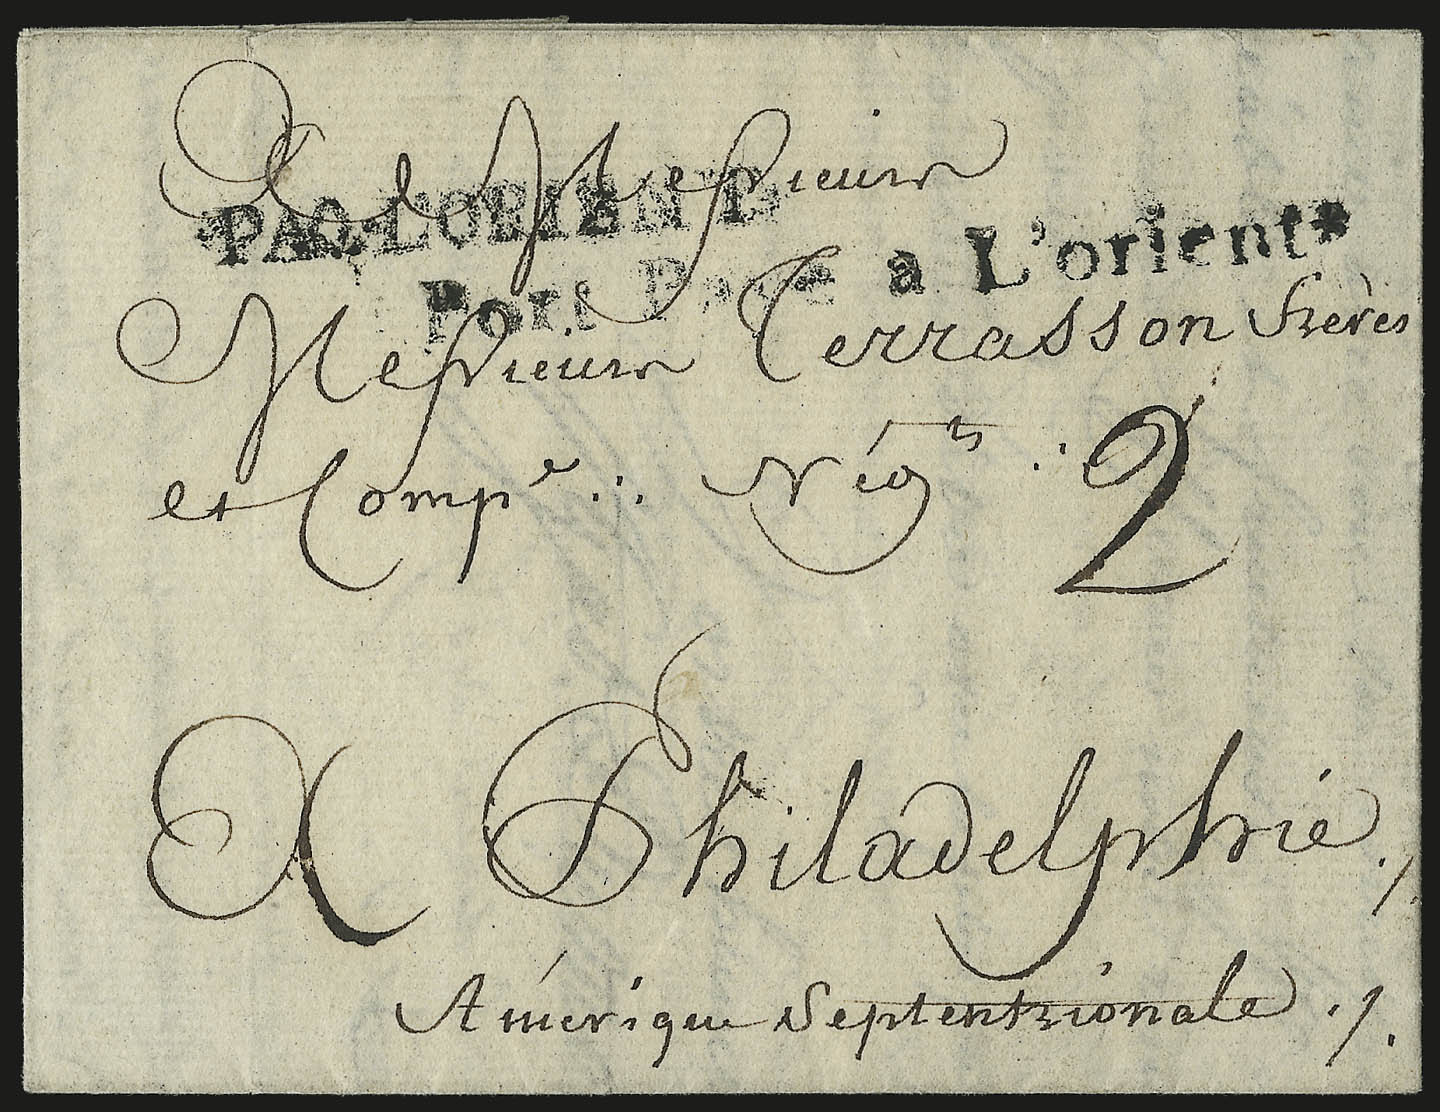 A Messieurs
PAQ. LORIENT
Port Payé a L'orient
Messieurs Terrasson Frères
et Compe ... Négts 2
A Philadelphie ./.
Amérique Septentrionale ./.